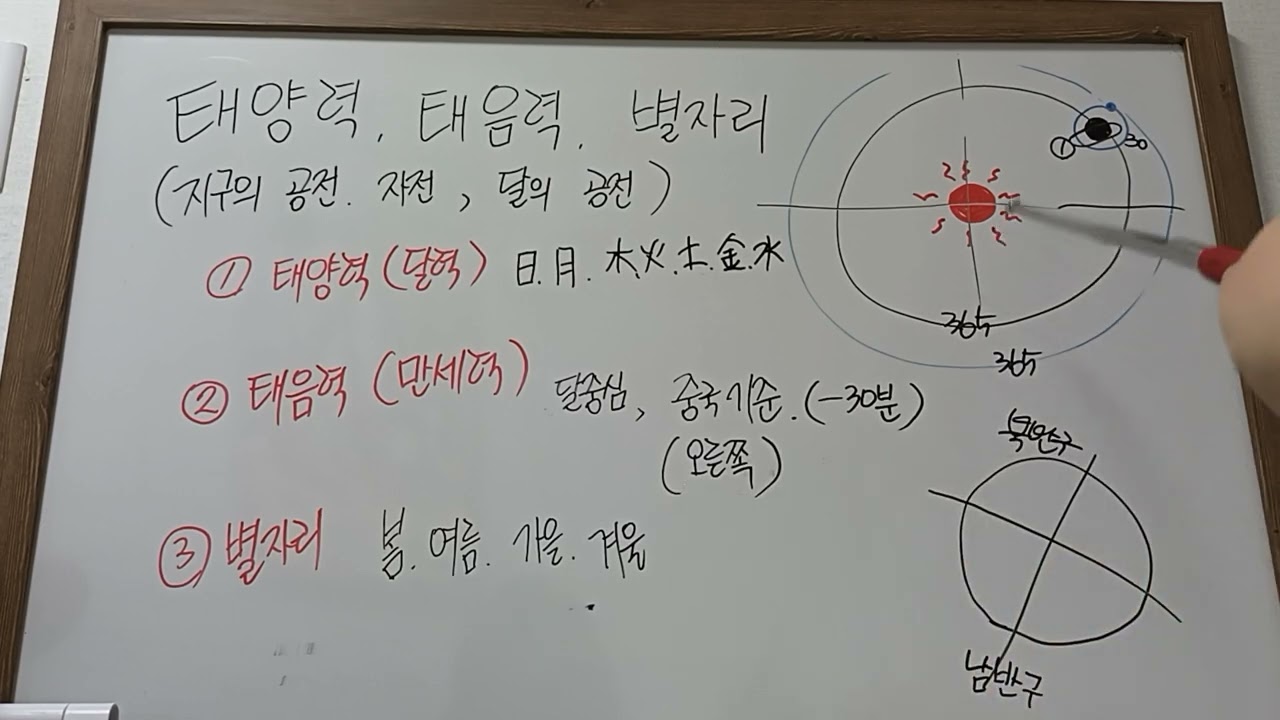 태양력, 태음력, 별자리
(지구의 공전. 자전, 달의 공전)
① 태양력(달력) 日.月.木.火.土.金.水
② 태음력 (만세력) 달중심, 중국기준.(-30분)
(오른쪽)
③ 별자리 봄. 여름. 가을. 겨울
① 30
365
365
북반구
남반구